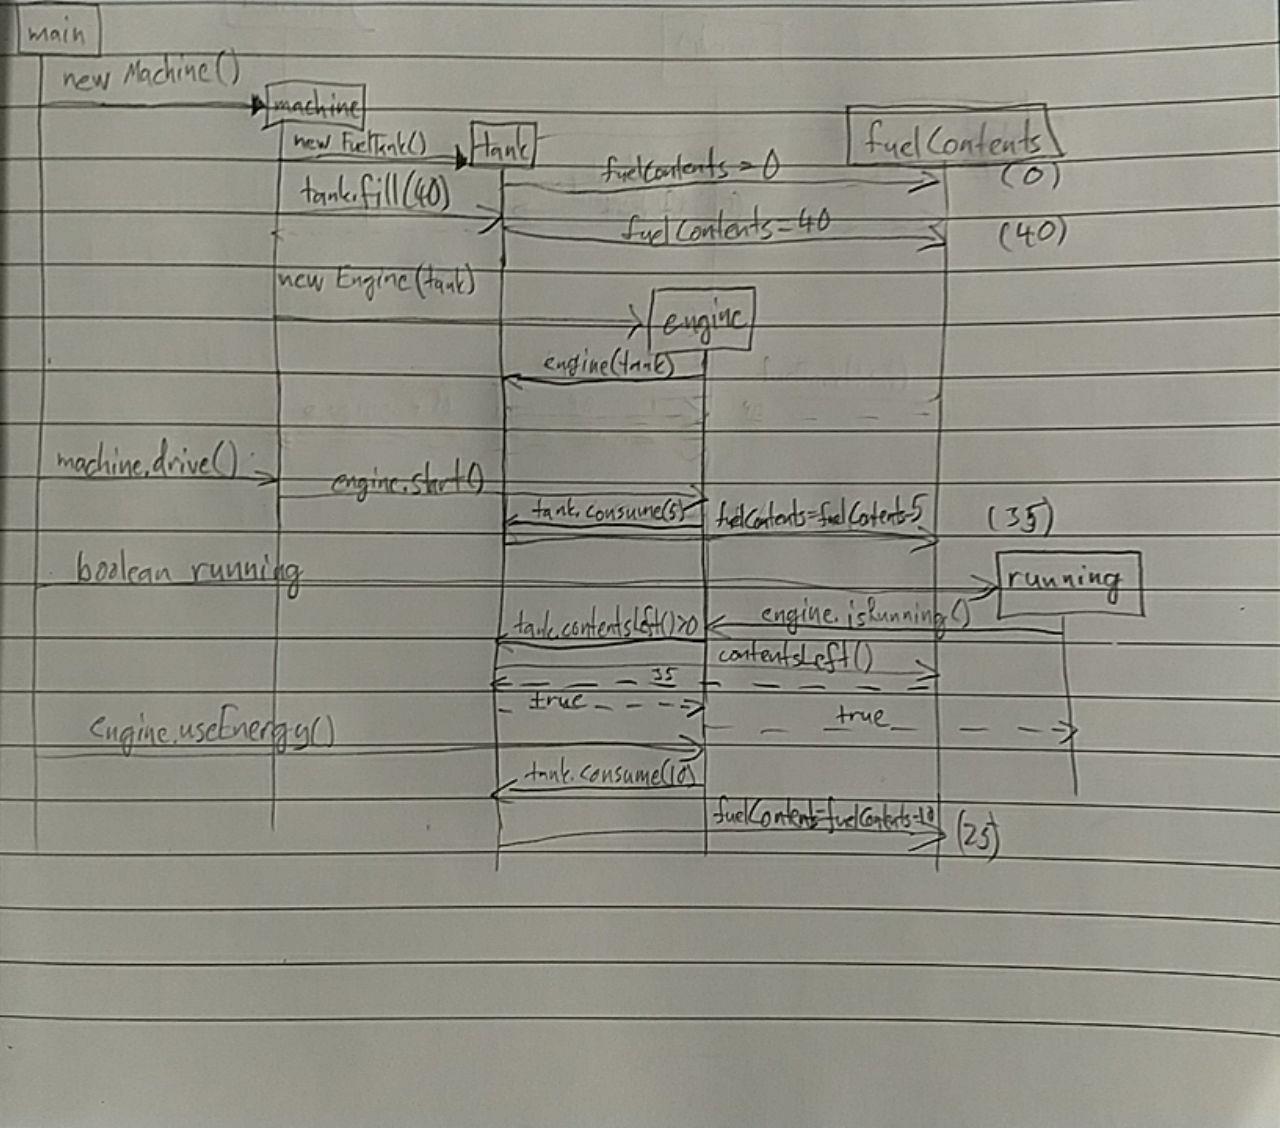 main
new Machine()
machine
new FuelTank()
tank
fuelContents
fuelContents = 0
(0)
tank.fill(40)
fuelContents = 40
(40)
new Engine(tank)
engine
engine(tank)
machine.drive()
engine.start()
tank.consume(5)
fuelContents=fuelContents-5
(35)
boolean running
running
engine.isRunning()
tank.contentsLeft()>0
contentsLeft()
35
true
true
engine.useEnergy()
tank.consume(10)
fuelContents=fuelContents-10
(25)